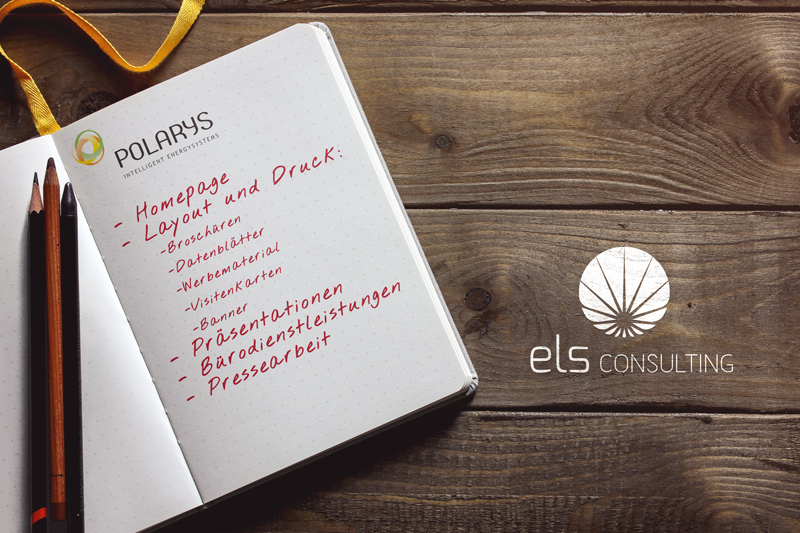 POLARYS
INTELLIGENT ENERGYSYSTEMS
- Homepage
- Layout und Druck:
-Broschüren
-Datenblätter
-Werbematerial
-Visitenkarten
-Banner
- Präsentationen
- Bürodienstleistungen
- Pressearbeit
els CONSULTING